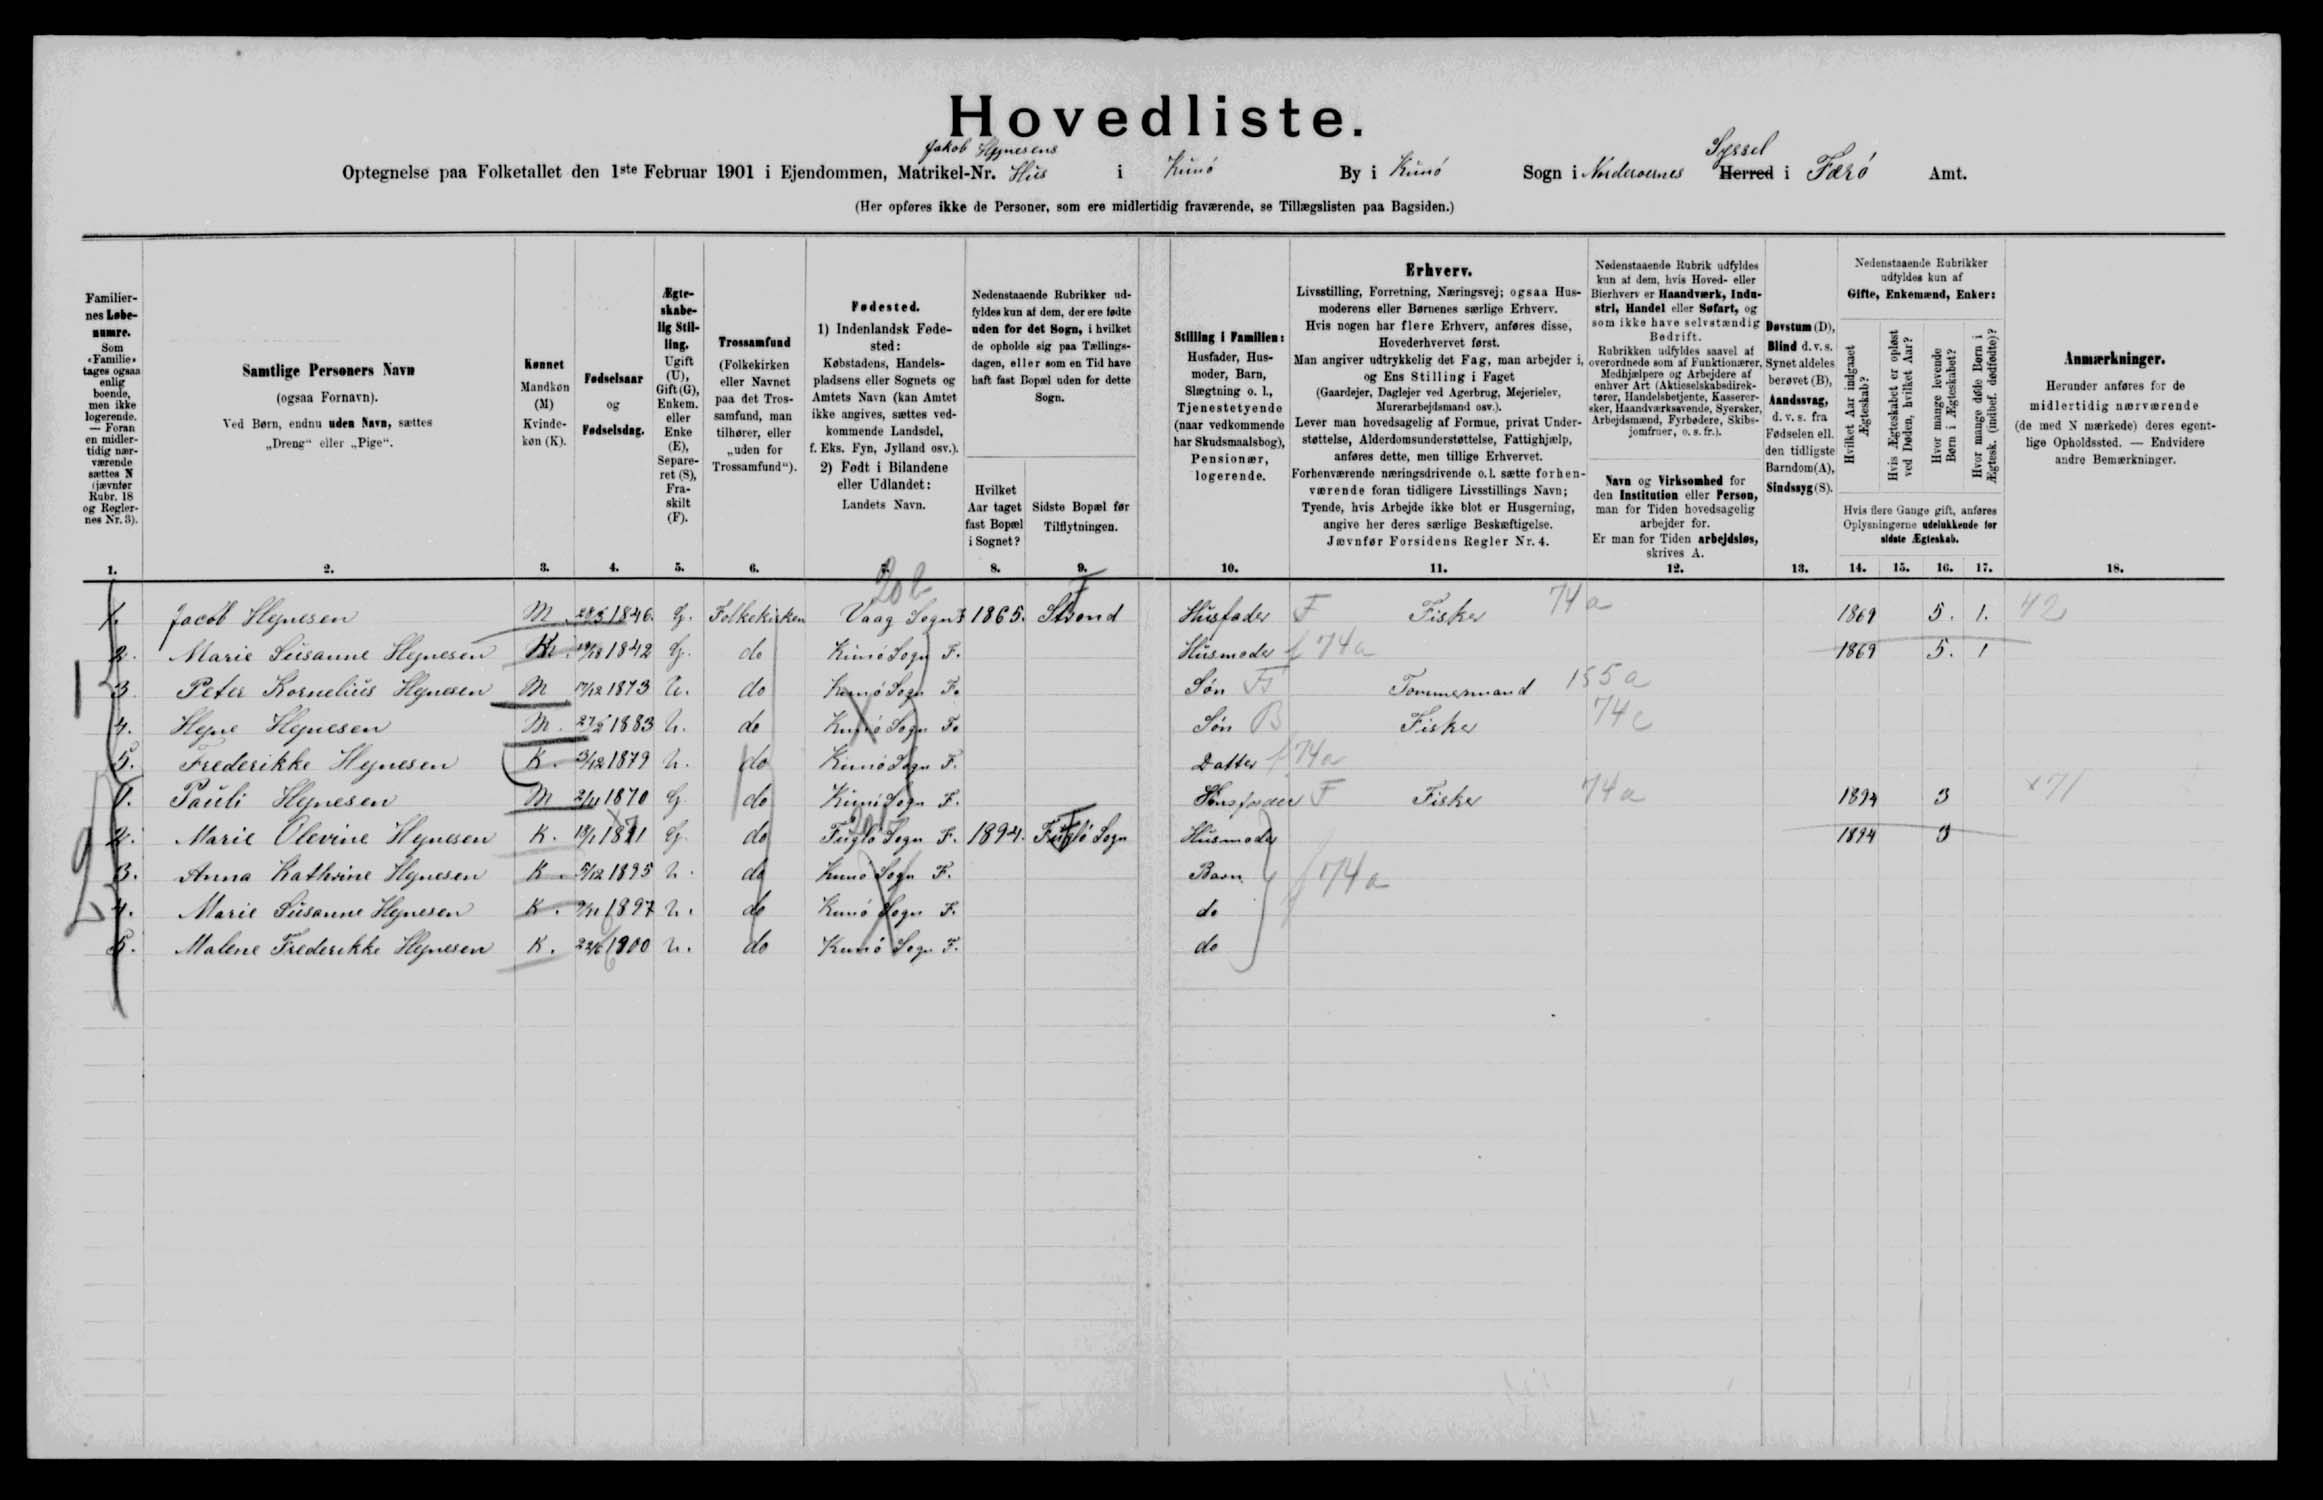 Hovedliste.
Jakob Hejnesens Syssel
Optegnelse paa Folketallet den 1ste Februar 1901 i Ejendommen, Matrikel-Nr. Hus i Kunø By i Kunø Sogn i Norderoernes Herred i Færø Amt.
(Her opføres ikke de Personer, som ere midlertidig fraværende, se Tillægslisten paa Bagsiden.)
Familiernes Løbenumre.
Som «Familie» tages ogsaa enlig boende, men ikke logerende. — Foran en midlertidig nærværende sættes N (jævnfør Rubr. 18 og Reglernes Nr. 3).
Samtlige Personers Navn
(ogsaa Fornavn).
Ved Børn, endnu uden Navn, sættes
„Dreng“ eller „Pige“.
Kønnet
Mandkøn (M)
Kvindekøn (K).
Fødselsaar
og
Fødselsdag.
Ægteskabelig Stilling.
Ugift (U), Gift (G), Enkem. eller Enke (E), Separeret (S), Fraskilt (F).
Trossamfund
(Folkekirken eller Navnet paa det Trossamfund, man tilhører, eller „uden for Trossamfund“).
Fødested.
1) Indenlandsk Fødested:
Købstadens, Handelspladsens eller Sognets og Amtets Navn (kan Amtet ikke angives, sættes vedkommende Landsdel, f. Eks. Fyn, Jylland osv.).
2) Født i Bilandene eller Udlandet:
Landets Navn.
Nedenstaaende Rubrikker udfyldes kun af dem, der ere fødte uden for det Sogn, i hvilket de opholde sig paa Tællingsdagen, eller som en Tid have haft fast Bopæl uden for dette Sogn.
Hvilket Aar taget fast Bopæl i Sognet?
Sidste Bopæl før Tilflytningen.
Stilling i Familien:
Husfader, Husmoder, Barn, Slægtning o. l., Tjenestetyende (naar vedkommende har Skudsmaalsbog), Pensionær, logerende.
Erhverv.
Livsstilling, Forretning, Næringsvej; ogsaa Husmoderens eller Børnenes særlige Erhverv.
Hvis nogen har flere Erhverv, anføres disse, Hovederhvervet først.
Man angiver udtrykkelig det Fag, man arbejder i, og Ens Stilling i Faget
(Gaardejer, Daglejer ved Agerbrug, Mejerielev, Murerarbejdsmand osv.).
Lever man hovedsagelig af Formue, privat Understøttelse, Alderdomsunderstøttelse, Fattighjælp, anføres dette, men tillige Erhvervet.
Forhenværende næringsdrivende o. l. sætte forhenværende foran tidligere Livsstillings Navn;
Tyende, hvis Arbejde ikke blot er Husgerning, angive her deres særlige Beskæftigelse.
Jævnfør Forsidens Regler Nr. 4.
Nedenstaaende Rubrik udfyldes kun af dem, hvis Hoved- eller Bierhverv er Haandværk, Industri, Handel eller Søfart, og som ikke have selvstændig Bedrift.
Rubrikken udfyldes saavel af overordnede som af Funktionærer, Medhjælpere og Arbejdere af enhver Art (Aktieselskabsdirektører, Handelsbetjente, Kasserersker, Haandværkssvende, Syersker, Arbejdsmænd, Fyrbødere, Skibsjomfruer, o. s. fr.).
Navn og Virksomhed for den Institution eller Person, man for Tiden hovedsagelig arbejder for.
Er man for Tiden arbejdsløs, skrives A.
Døvstum (D), Blind d. v. s. Synet aldeles berøvet (B), Aandssvag, d. v. s. fra Fødselen ell. den tidligste Barndom (A), Sindssyg (S).
Nedenstaaende Rubrikker udfyldes kun af
Gifte, Enkemænd, Enker:
Hvilket Aar indgaaet Ægteskab?
Hvis Ægteskabet er opløst ved Døden, hvilket Aar?
Hvor mange levende Børn i Ægteskabet?
Hvor mange døde Børn i Ægtesk. (indbef. dødfødte)?
Hvis flere Gange gift, anføres Oplysningerne udelukkende for sidste Ægteskab.
Anmærkninger.
Herunder anføres for de midlertidig nærværende (de med N mærkede) deres egentlige Opholdssted. — Endvidere andre Bemærkninger.
1. 2. 3. 4. 5. 6. 7. 8. 9. 10. 11. 12. 13. 14. 15. 16. 17. 18.
20b F
1. Jacob Hejnesen M 28/5 1846. G. Folkekirken Vaag Sogn F 1865. Strond Husfader F Fisker 74a 1869 5. 1. 42
2. Marie Susanne Hejnesen K. 1842 G. do Kunø Sogn F. Husmoder f 74a 1869 5. 1
3. Peter Kornelius Hejnesen M 17/12 1873 U. do Kunø Sogn F. Søn Tømmermand 155a
4. Hejne Hejnesen M. 1883 U. do Kunø Sogn F. Søn B Fisker 74c
5. Frederikke Hejnesen K. 3/12 1879 U. do Kunø Sogn F. Datter f 74a
1. Pauli Hejnesen M 2/11 1870 G. do Kunø Sogn F. Husfader F Fisker 74a 1894 3 x71
2. Marie Olevine Hejnesen K. G. do Fuglø Sogn F. 1894. Fuglø Sogn Husmoder 1894 3
3. Anna Kathrine Hejnesen K. 5/12 1895 U. do Kunø Sogn F. Barn f 74a
4. Marie Susanne Hejnesen K. 1897 U. do Kunø Sogn F. do
5. Malene Frederikke Hejnesen K. 22/6 1900 U. do Kunø Sogn F. do